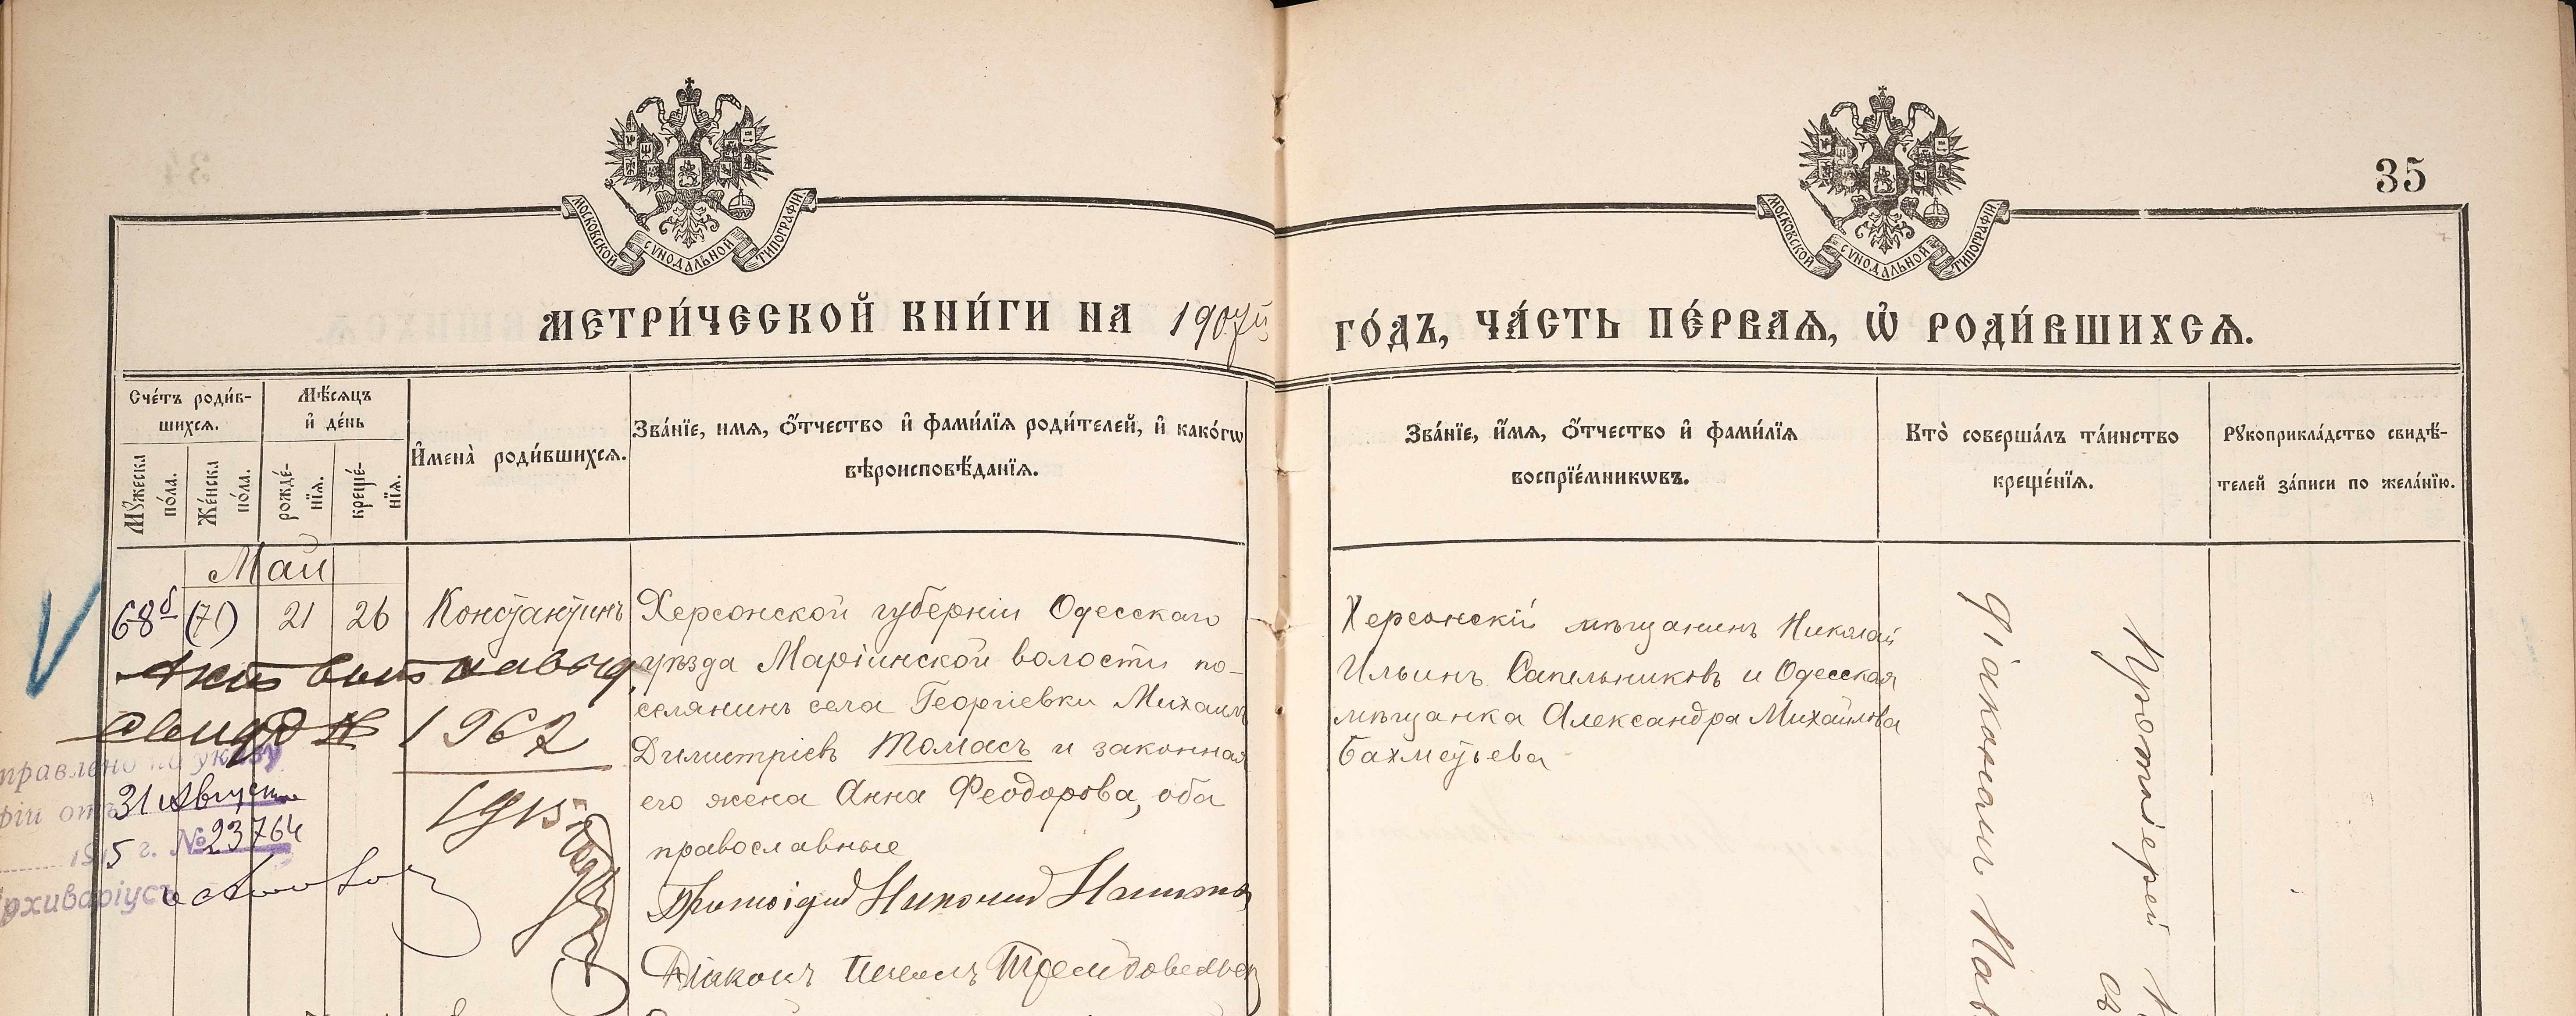 35
МОСКОВСКОЙ СУНОДАЛЬНОЙ ТИПОГРАФІИ
МОСКОВСКОЙ СУНОДАЛЬНОЙ ТИПОГРАФІИ
МЕТРИ́ЧЕСКОЙ КНИ́ГИ НА 1907й ГО́ДЪ, ЧА́СТЬ ПЕ́РВАѦ, Ѡ҆ РОДИ́ВШИХСѦ.
Сче́тъ роди́в-
шихсѧ.
Мꙋжеска по́ла.
Же́нска по́ла.
Мѣ́сѧцъ
и҆ де́нь
рожде́-
нїѧ.
креще́-
нїѧ.
И҆мена̀ роди́вшихсѧ.
Зва́нїе, имѧ, ѻ҆́тчество и҆ фами́лїѧ роди́телей, и҆ како́гѡ
вѣроисповѣ́данїѧ.
Зва́нїе, и҆́мѧ, ѻ҆́тчество и҆ фами́лїѧ
воспрїе́мникѡвъ.
Кто̀ соверша́лъ та́инство
креще́нїѧ.
Рꙋкоприкла́дство свидѣ́-
телей за́писи по жела́нїю.
Май
68б (71) 21 26 Константинъ
Херсонской губерніи Одесскаго
уѣзда Маріинской волости по-
селянинъ села Георгіевки Михаилъ
Димитріевъ Томасъ и законная
его жена Анна Феодорова, оба
православные
Протоіерей Николай
Діаконъ Павелъ
Херсонскій мѣщанинъ Николай
Ильинъ Сапельниковъ и Одесская
мѣщанка Александра Михайлова
Бахметьева
Протоіерей
съ
Діакономъ
№ 1967
1915
правлено по указу
ріи отъ 31 Августа
1915 г. № 23764
рхиваріусъ